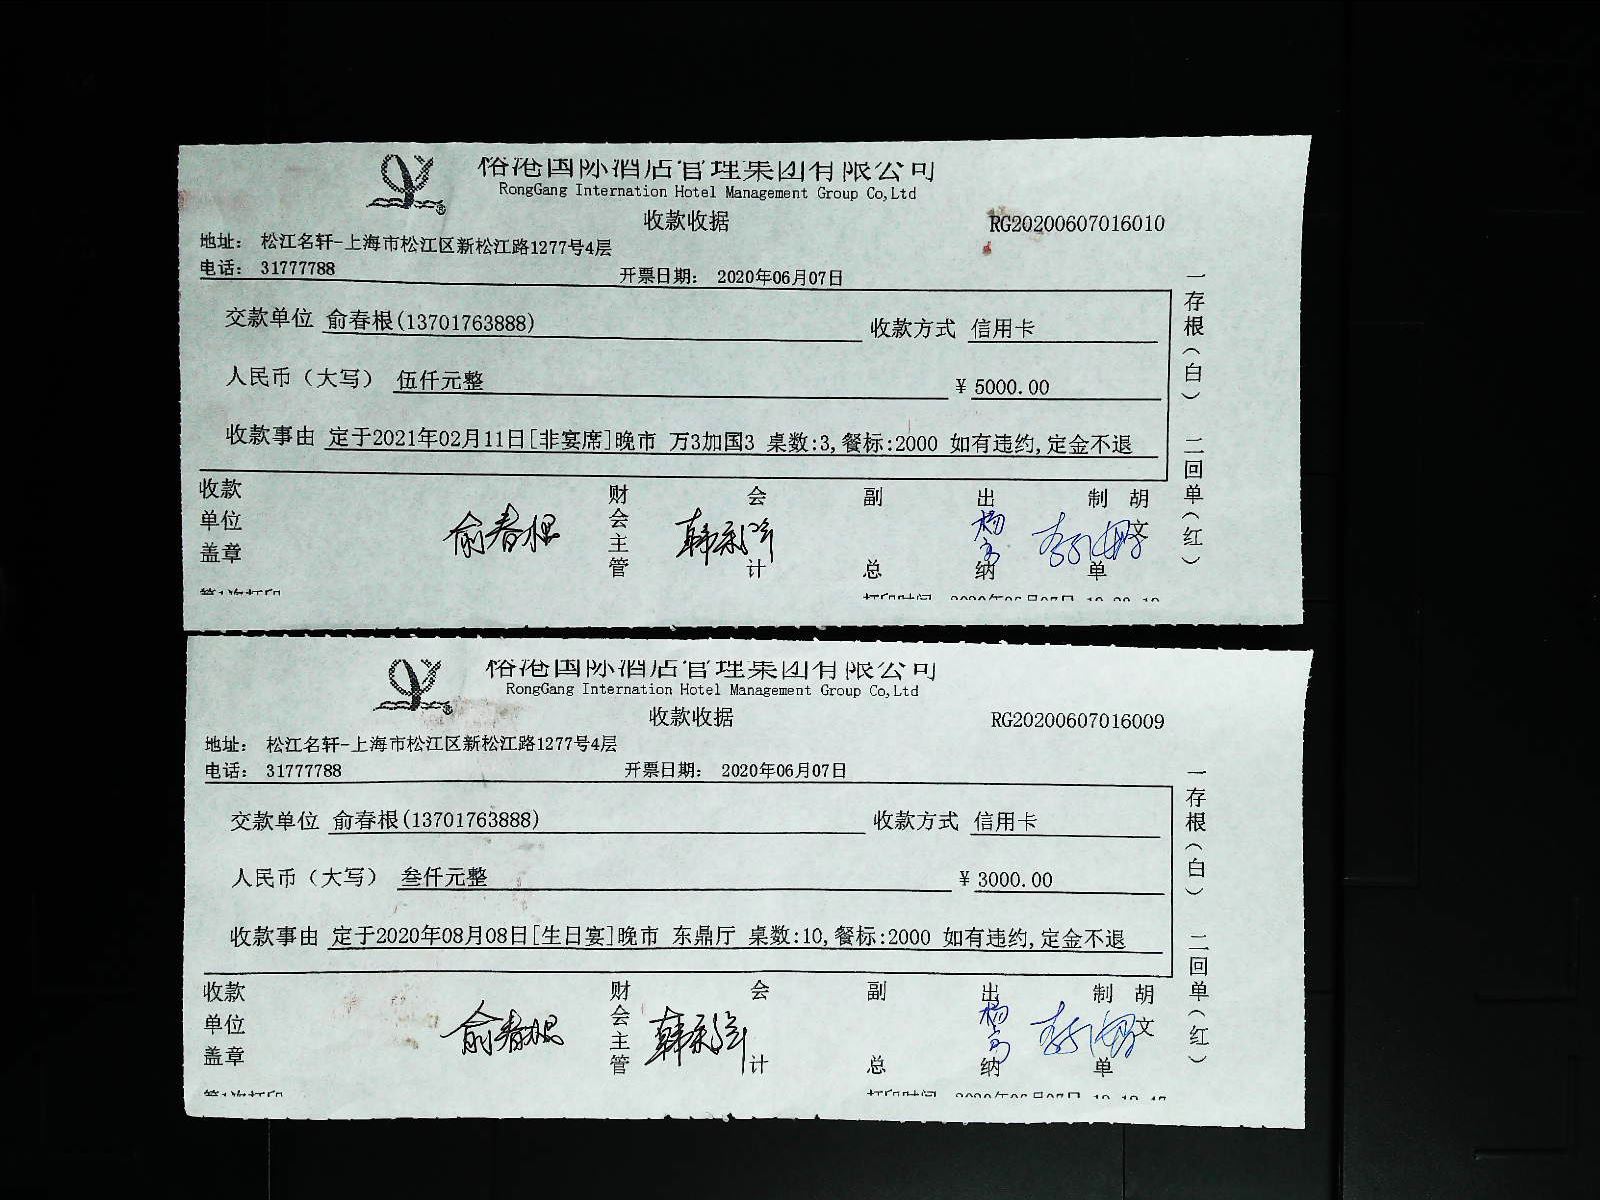 榕港国际酒店管理集团有限公司
RongGang Internation Hotel Management Group Co,Ltd
收款收据 RG20200607016010
地址: 松江名轩-上海市松江区新松江路1277号4层
电话: 31777788 开票日期: 2020年06月07日
交款单位 俞春根(13701763888) 收款方式 信用卡
人民币（大写） 伍仟元整 ¥ 5000.00
收款事由 定于2021年02月11日[非宴席]晚市 万3加国3 桌数:3,餐标:2000 如有违约,定金不退
一存根（白） 二回单（红）
收款单位盖章 俞春根 财会主管 会计 副总 出纳 制单 胡文
第1次打印 打印时间
榕港国际酒店管理集团有限公司
RongGang Internation Hotel Management Group Co,Ltd
收款收据 RG20200607016009
地址: 松江名轩-上海市松江区新松江路1277号4层
电话: 31777788 开票日期: 2020年06月07日
交款单位 俞春根(13701763888) 收款方式 信用卡
人民币（大写） 叁仟元整 ¥ 3000.00
收款事由 定于2020年08月08日[生日宴]晚市 东鼎厅 桌数:10,餐标:2000 如有违约,定金不退
一存根（白） 二回单（红）
收款单位盖章 俞春根 财会主管 会计 副总 出纳 制单 胡文
第1次打印 打印时间